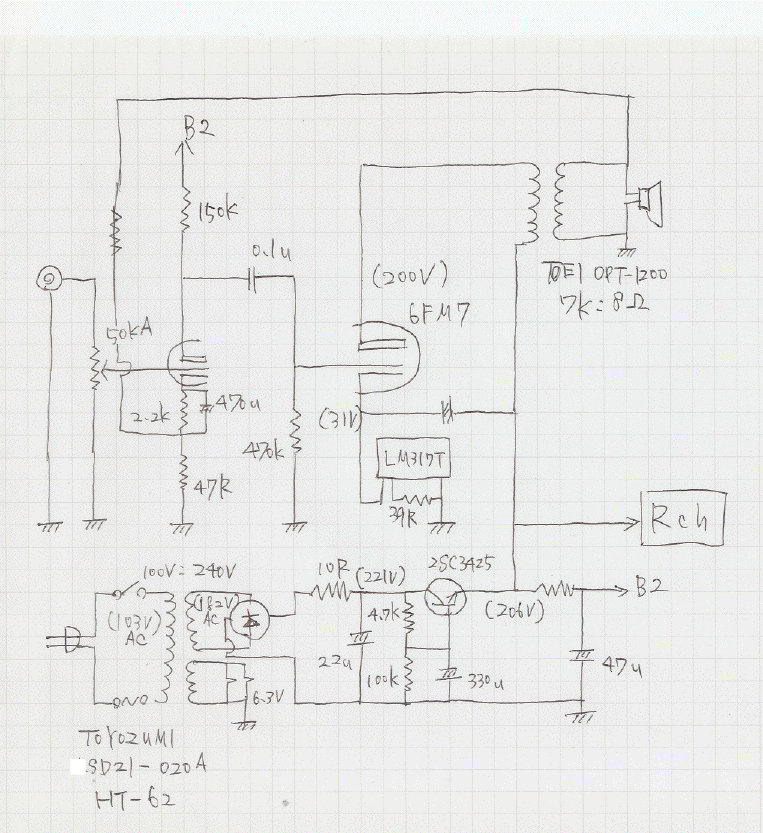 B2
150k
0.1u
(200V)
6FM7
TOEI OPT-1200
7k:8Ω
50kA
2.2k
470u
(31V)
470k
LM317T
47R
39R
Rch
100V:240V
10R
(221V)
2SC3425
(103V)
AC
(182V)
AC
4.7k
(206V)
B2
22u
100k
330u
47u
6.3V
TOYOZUMI
SD21-020A
HT-62